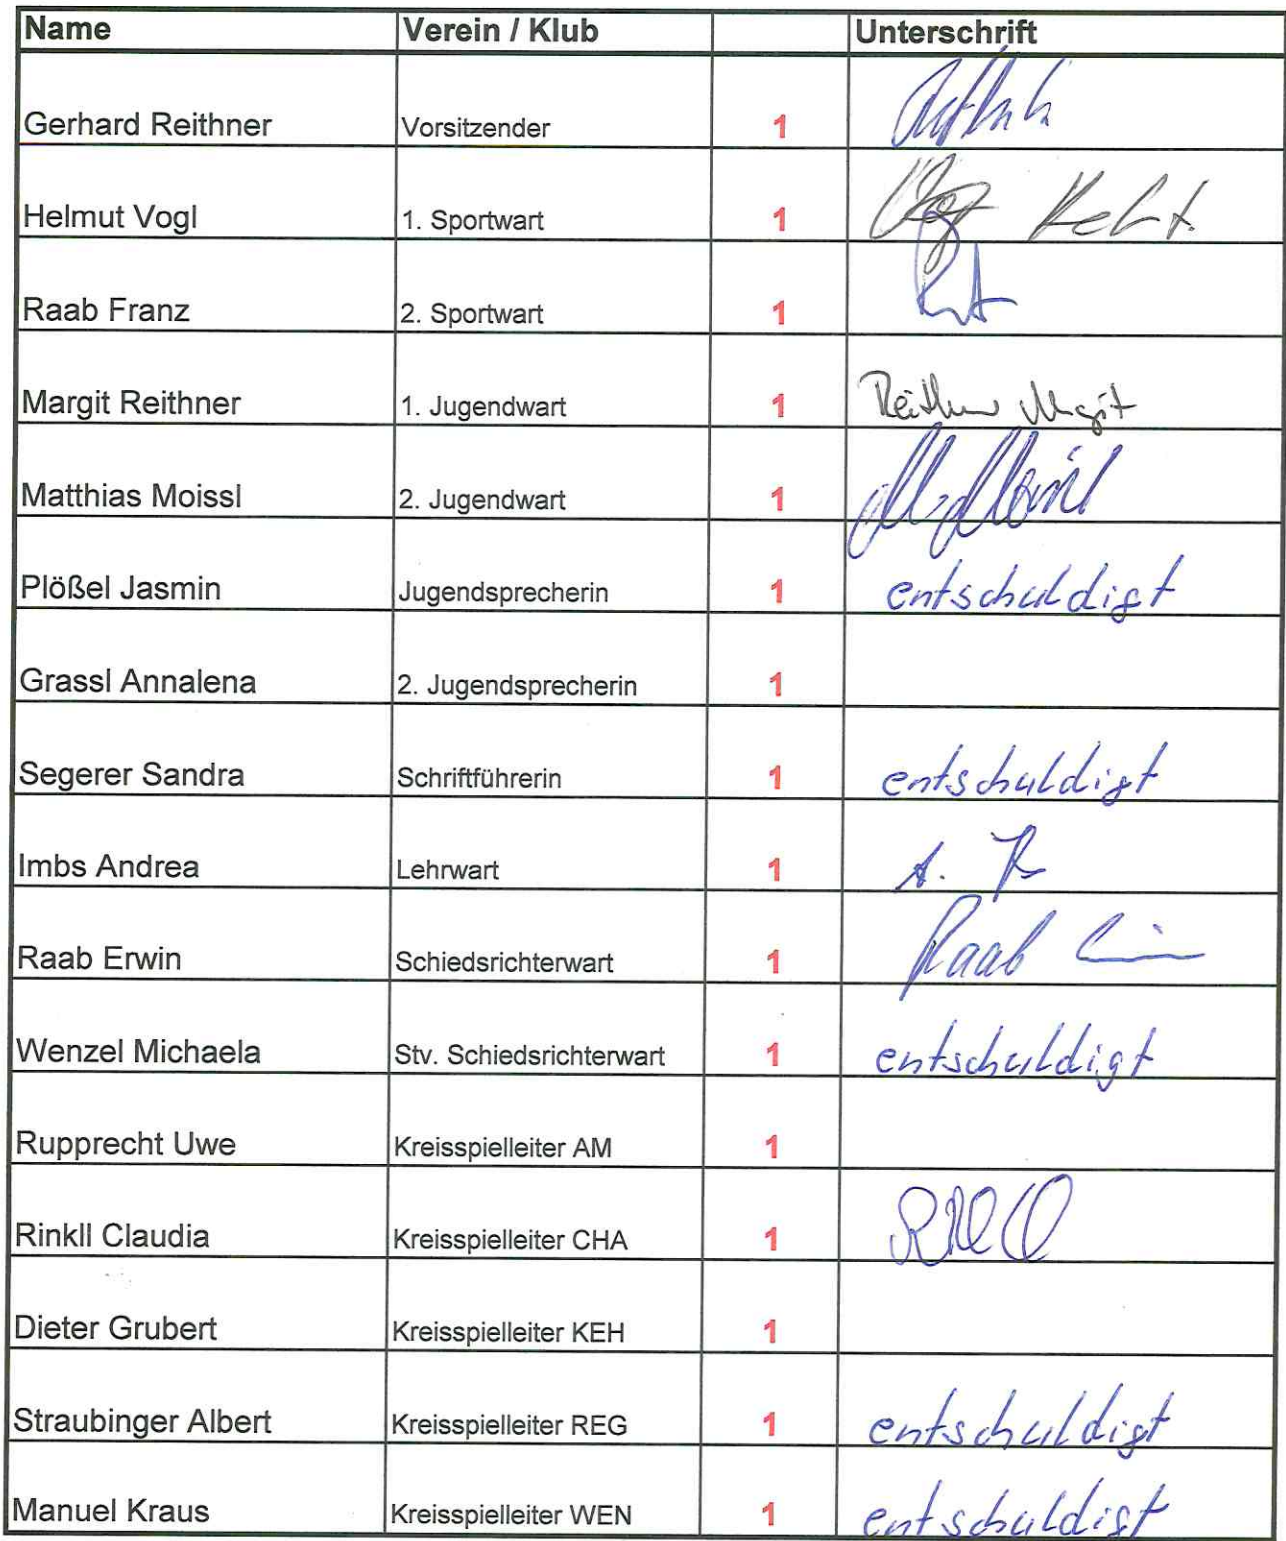 Name Verein / Klub Unterschrift
Gerhard Reithner Vorsitzender 1
Helmut Vogl 1. Sportwart 1
Raab Franz 2. Sportwart 1
Margit Reithner 1. Jugendwart 1 Reithner Margit
Matthias Moissl 2. Jugendwart 1
Plößel Jasmin Jugendsprecherin 1 entschuldigt
Grassl Annalena 2. Jugendsprecherin 1
Segerer Sandra Schriftführerin 1 entschuldigt
Imbs Andrea Lehrwart 1 A.
Raab Erwin Schiedsrichterwart 1 Raab
Wenzel Michaela Stv. Schiedsrichterwart 1 entschuldigt
Rupprecht Uwe Kreisspielleiter AM 1
Rinkll Claudia Kreisspielleiter CHA 1
Dieter Grubert Kreisspielleiter KEH 1
Straubinger Albert Kreisspielleiter REG 1 entschuldigt
Manuel Kraus Kreisspielleiter WEN 1 entschuldigt